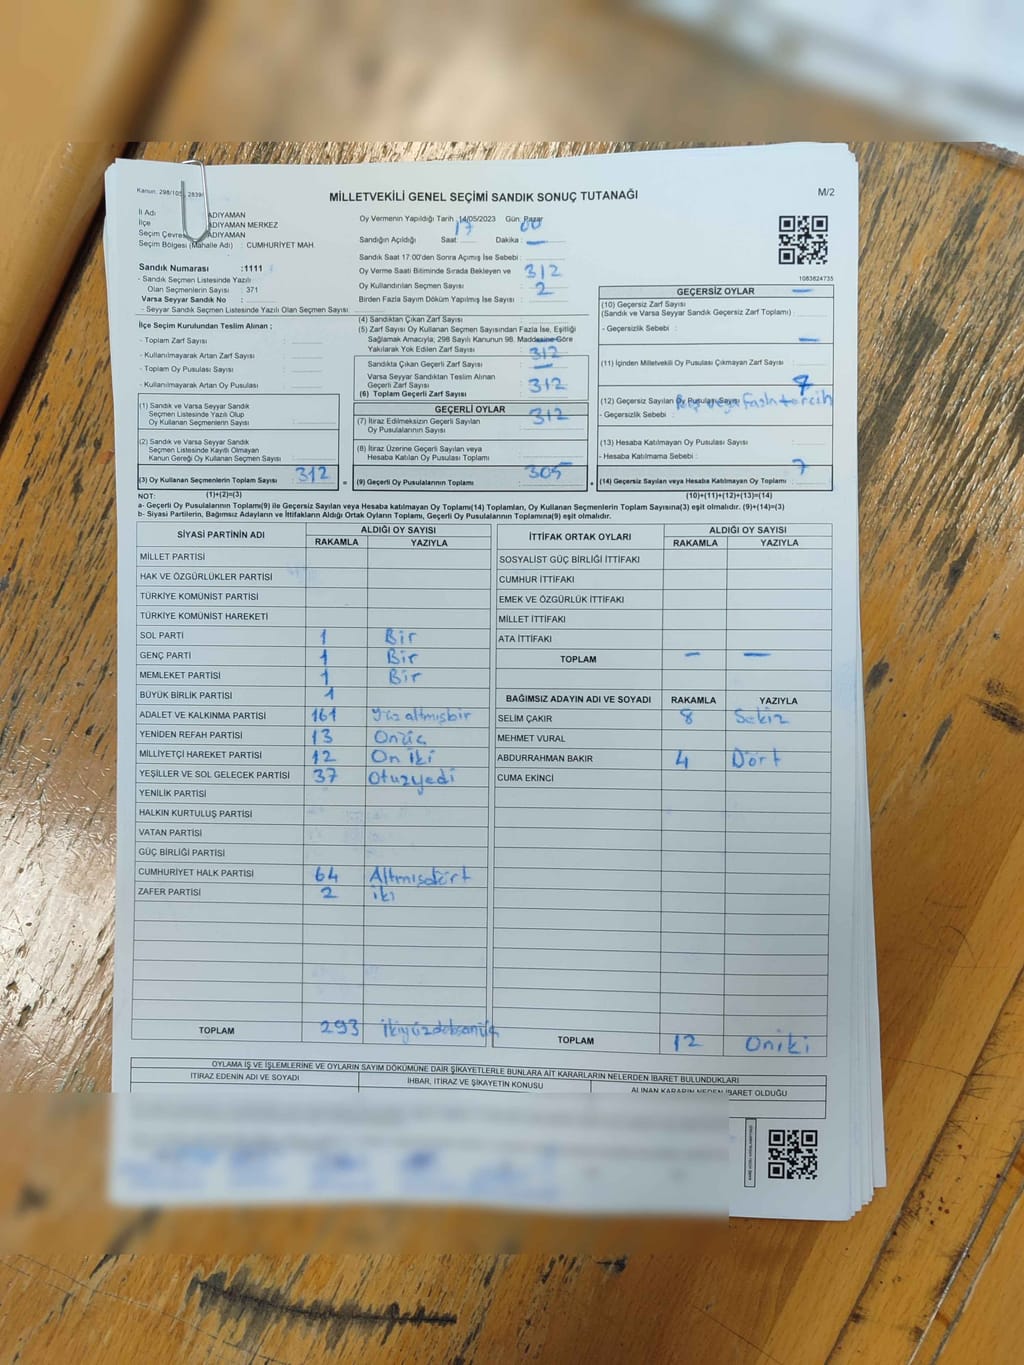 Kanun: 298/105, 2839
MİLLETVEKİLİ GENEL SEÇİMİ SANDIK SONUÇ TUTANAĞI
M/2
İl Adı ADIYAMAN
İlçe ADIYAMAN MERKEZ
Seçim Çevresi ADIYAMAN
Seçim Bölgesi (Mahalle Adı) : CUMHURİYET MAH.
Sandık Numarası :1111
- Sandık Seçmen Listesinde Yazılı
Olan Seçmenlerin Sayısı : 371
Varsa Seyyar Sandık No :
- Seyyar Sandık Seçmen Listesinde Yazılı Olan Seçmen Sayısı
Oy Vermenin Yapıldığı Tarih :14/05/2023 Gün: Pazar
Sandığın Açıldığı Saat: 17 Dakika: 00
Sandık Saat 17:00'den Sonra Açımış İse Sebebi : —
Oy Verme Saati Bitiminde Sırada Bekleyen ve
Oy Kullandırılan Seçmen Sayısı : 312
Birden Fazla Sayım Döküm Yapılmış İse Sayısı : 2
1083824735
İlçe Seçim Kurulundan Teslim Alınan ;
- Toplam Zarf Sayısı :
- Kullanılmayarak Artan Zarf Sayısı :
- Toplam Oy Pusulası Sayısı :
- Kullanılmayarak Artan Oy Pusulası :
(1) Sandık ve Varsa Seyyar Sandık
Seçmen Listesinde Yazılı Olup
Oy Kullanan Seçmenlerin Sayısı :
(2) Sandık ve Varsa Seyyar Sandık
Seçmen Listesinde Kayıtlı Olmayan
Kanun Gereği Oy Kullanan Seçmen Sayısı :
(3) Oy Kullanan Seçmenlerin Toplam Sayısı : 312
(1)+(2)=(3)
(4) Sandıktan Çıkan Zarf Sayısı :
(5) Zarf Sayısı Oy Kullanan Seçmen Sayısından Fazla İse, Eşitliği
Sağlamak Amacıyla; 298 Sayılı Kanunun 98. Maddesine Göre
Yakılarak Yok Edilen Zarf Sayısı :
Sandıkta Çıkan Geçerli Zarf Sayısı : 312
Varsa Seyyar Sandıktan Teslim Alınan
Geçerli Zarf Sayısı : —
(6) Toplam Geçerli Zarf Sayısı : 312
GEÇERLİ OYLAR
(7) İtiraz Edilmeksizin Geçerli Sayılan
Oy Pusulalarının Sayısı : 312
(8) İtiraz Üzerine Geçerli Sayılan veya
Hesaba Katılan Oy Pusulası Toplamı :
(9) Geçerli Oy Pusulalarının Toplamı : 305
GEÇERSİZ OYLAR
(10) Geçersiz Zarf Sayısı —
(Sandık ve Varsa Seyyar Sandık Geçersiz Zarf Toplamı) :
- Geçersizlik Sebebi :
(11) İçinden Milletvekili Oy Pusulası Çıkmayan Zarf Sayısı : —
(12) Geçersiz Sayılan Oy Pusulası Sayısı 7
- Geçersizlik Sebebi : fazla tercih
(13) Hesaba Katılmayan Oy Pusulası Sayısı :
- Hesaba Katılmama Sebebi :
(14) Geçersiz Sayılan veya Hesaba Katılmayan Oy Toplamı : 7
(10)+(11)+(12)+(13)=(14)
NOT:
a- Geçerli Oy Pusulalarının Toplamı(9) ile Geçersiz Sayılan veya Hesaba katılmayan Oy Toplamı(14) Toplamları, Oy Kullanan Seçmenlerin Toplam Sayısına(3) eşit olmalıdır. (9)+(14)=(3)
b- Siyasi Partilerin, Bağımsız Adayların ve İttifakların Aldığı Ortak Oyların Toplamı, Geçerli Oy Pusulalarının Toplamına(9) eşit olmalıdır.
SİYASİ PARTİNİN ADI ALDIĞI OY SAYISI
RAKAMLA YAZIYLA
MİLLET PARTİSİ
HAK VE ÖZGÜRLÜKLER PARTİSİ
TÜRKİYE KOMÜNİST PARTİSİ
TÜRKİYE KOMÜNİST HAREKETİ
SOL PARTİ 1 Bir
GENÇ PARTİ 1 Bir
MEMLEKET PARTİSİ 1 Bir
BÜYÜK BİRLİK PARTİSİ 1
ADALET VE KALKINMA PARTİSİ 161 Yüz altmışbir
YENİDEN REFAH PARTİSİ 13 Onüç
MİLLİYETÇİ HAREKET PARTİSİ 12 On iki
YEŞİLLER VE SOL GELECEK PARTİSİ 37 Otuzyedi
YENİLİK PARTİSİ
HALKIN KURTULUŞ PARTİSİ
VATAN PARTİSİ
GÜÇ BİRLİĞİ PARTİSİ
CUMHURİYET HALK PARTİSİ 64 Altmışdört
ZAFER PARTİSİ 2 iki
TOPLAM 293 ikiyüzdoksanüç
İTTİFAK ORTAK OYLARI ALDIĞI OY SAYISI
RAKAMLA YAZIYLA
SOSYALİST GÜÇ BİRLİĞİ İTTİFAKI
CUMHUR İTTİFAKI
EMEK VE ÖZGÜRLÜK İTTİFAKI
MİLLET İTTİFAKI
ATA İTTİFAKI
TOPLAM — —
BAĞIMSIZ ADAYIN ADI VE SOYADI RAKAMLA YAZIYLA
SELİM ÇAKIR 8 Sekiz
MEHMET VURAL
ABDURRAHMAN BAKIR 4 Dört
CUMA EKİNCİ
TOPLAM 12 Oniki
OYLAMA İŞ VE İŞLEMLERİNE VE OYLARIN SAYIM DÖKÜMÜNE DAİR ŞİKAYETLERLE BUNLARA AİT KARARLARIN NELERDEN İBARET BULUNDUKLARI
İTİRAZ EDENİN ADI VE SOYADI İHBAR, İTİRAZ VE ŞİKAYETİN KONUSU ALINAN KARARIN NEDEN İBARET OLDUĞU